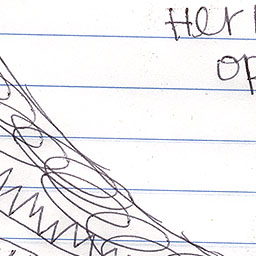 Her
op